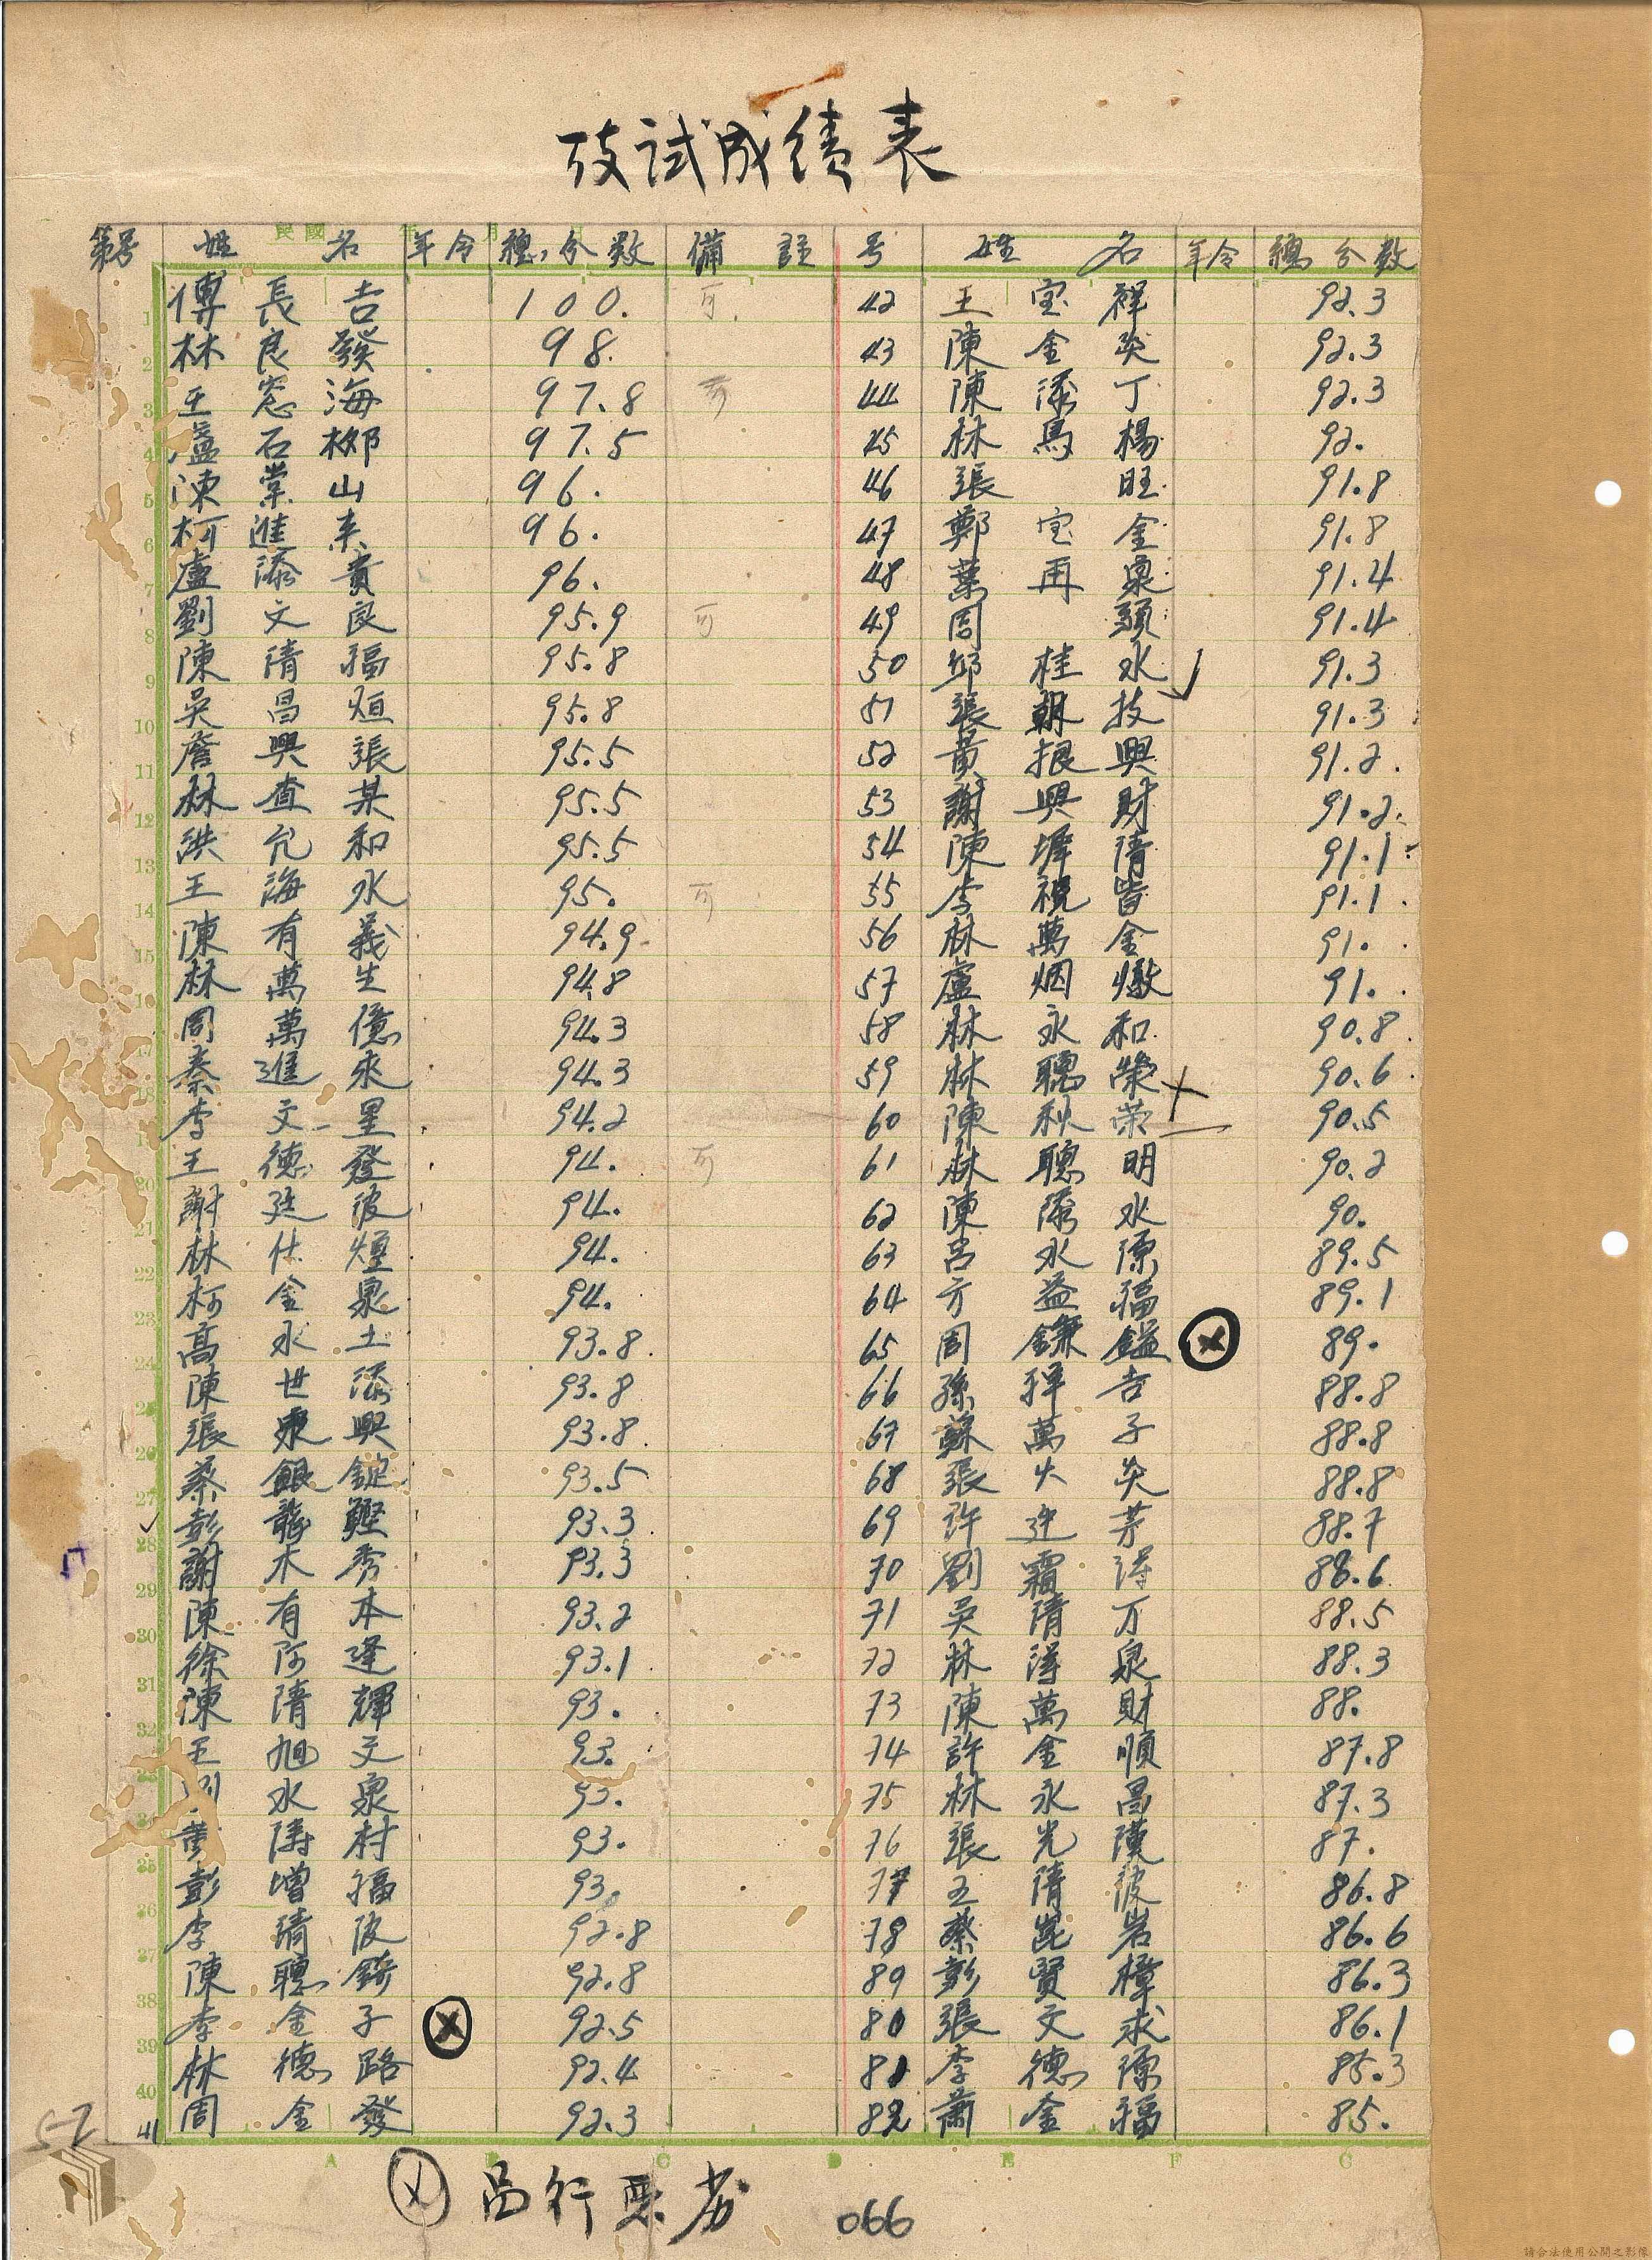 攷試成績表
第号 姓名 年令 總分数 備註 号 姓名 年令 總分数
1 傅長吉 100. 可
2 林良發 98.
3 王窓海 97.8 可
4 盧石 97.5
5 陳棠山 96.
6 柯進来 96.
7 盧添貴 96.
8 劉文良 95.9 可
9 陳清福 95.8
10 吳昌烜 95.8
11 詹興張 95.5
12 林查某 95.5
13 洪允和 95.5
14 王海水 95. 可
15 陳有義 94.9
16 林萬生 94.8
17 周萬億 94.3
18 秦進來 94.3
19 李文星 94.2
20 王德發 94. 可
21 謝廷波 94.
22 林仕煙 94.
23 柯金泉 94.
24 高水土 93.8
25 陳世添 93.8
26 張興 93.8
27 蔡銀錠 93.5
28 彭 93.3
29 謝木秀 93.3
30 陳有本 93.2
31 徐阿逢 93.1
32 陳清輝 93.
33 王旭文 93.
34 劉水泉 93.
35 黃村 93.
36 彭增福 93.
37 李清波 92.8
38 陳聰錡 92.8
39 李金子 92.5
40 林德路 92.4
41 周金發 92.3
42 王宝祥 92.3
43 陳金炎 92.3
44 陳添丁 92.3
45 林馬楊 92.
46 張旺 91.8
47 鄭宝金 91.8
48 葉再泉 91.4
49 周頭 91.4
50 邱桂水 91.3
51 張朝技 91.3
52 黃振興 91.2
53 謝興財 91.2
54 陳墀清 91.1
55 李皆 91.1
56 林萬金 91.
57 盧烟燉 91.
58 林永和 90.8
59 林聰榮 90.6
60 陳秋荣 90.5
61 林聰明 90.2
62 陳添水 90.
63 呂水源 89.5
64 方益福 89.1
65 周鎌鎰 89.
66 孫拜吉 88.8
67 蘇萬子 88.8
68 張火炎 88.8
69 許迚芽 88.7
70 劉霜得 88.6
71 吳清万 88.5
72 林得泉 88.3
73 陳萬財 88.
74 許金順 87.8
75 林永昌 87.3
76 張光漢 87.
77 王清波 86.8
78 蔡崑岩 86.6
89 彭賢樟 86.3
80 張文求 86.1
81 李德源 85.3
82 蕭金福 85.
57
A C D E F G
品行悪劣
066
請合法使用公開之影像